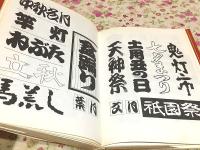 鬼灯市
七夕まつり
土用丑の日
天神祭
祇園祭
文月
盆踊り
葉月
中秋名月
竿灯
ねぶた
立秋